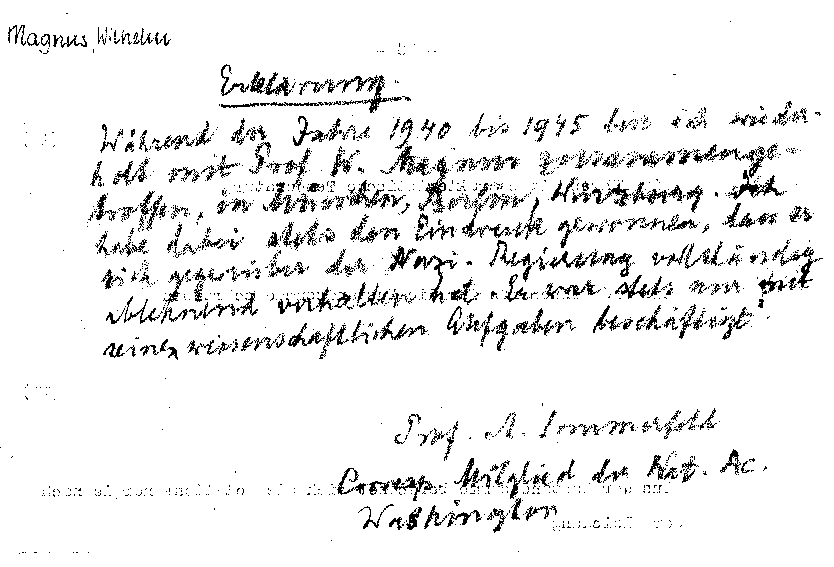 Magnus, Wilhelm
Erklärung.
Während der Jahre 1940 bis 1945 bin ich wieder-
holt mit Prof. W. Magnus zusammenge-
troffen, in München, Berlin, Würzburg. Ich
habe dabei stets den Eindruck gewonnen, dass er
sich gegenüber der Nazi-Regierung vollständig
ablehnend verhalten hat. Er war stets nur mit
seinen wissenschaftlichen Aufgaben beschäftigt.
Prof. A. Sommerfeld
Corresp. Mitglied der Nat. Ac.
Washington